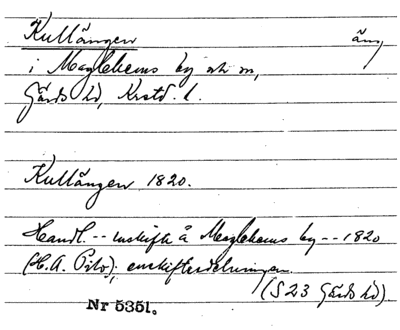 Kullängen äng
i Maglehems by och sn,
Gärds hd, Krstd. l.
Kullängen 1820.
Handl. -- enskifte å Maglehems by -- 1820
(H.A. ); enskiftesdelningen.
(S 23 Gärds hd).
Nr 5351.